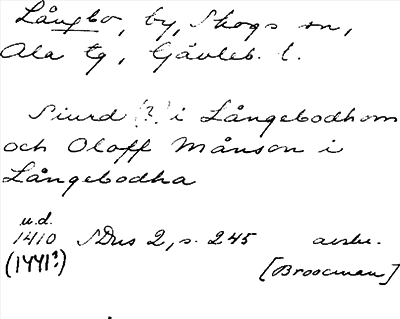 Långbo, by, Skogs sn,
Ala tg, Gävleb. l.
Siurd (?) i Långebodhom
och Oloff Månson i
Långebodha
u.d.
1410 SDns 2, s. 245 avskr.
(1441?) [Broocman]